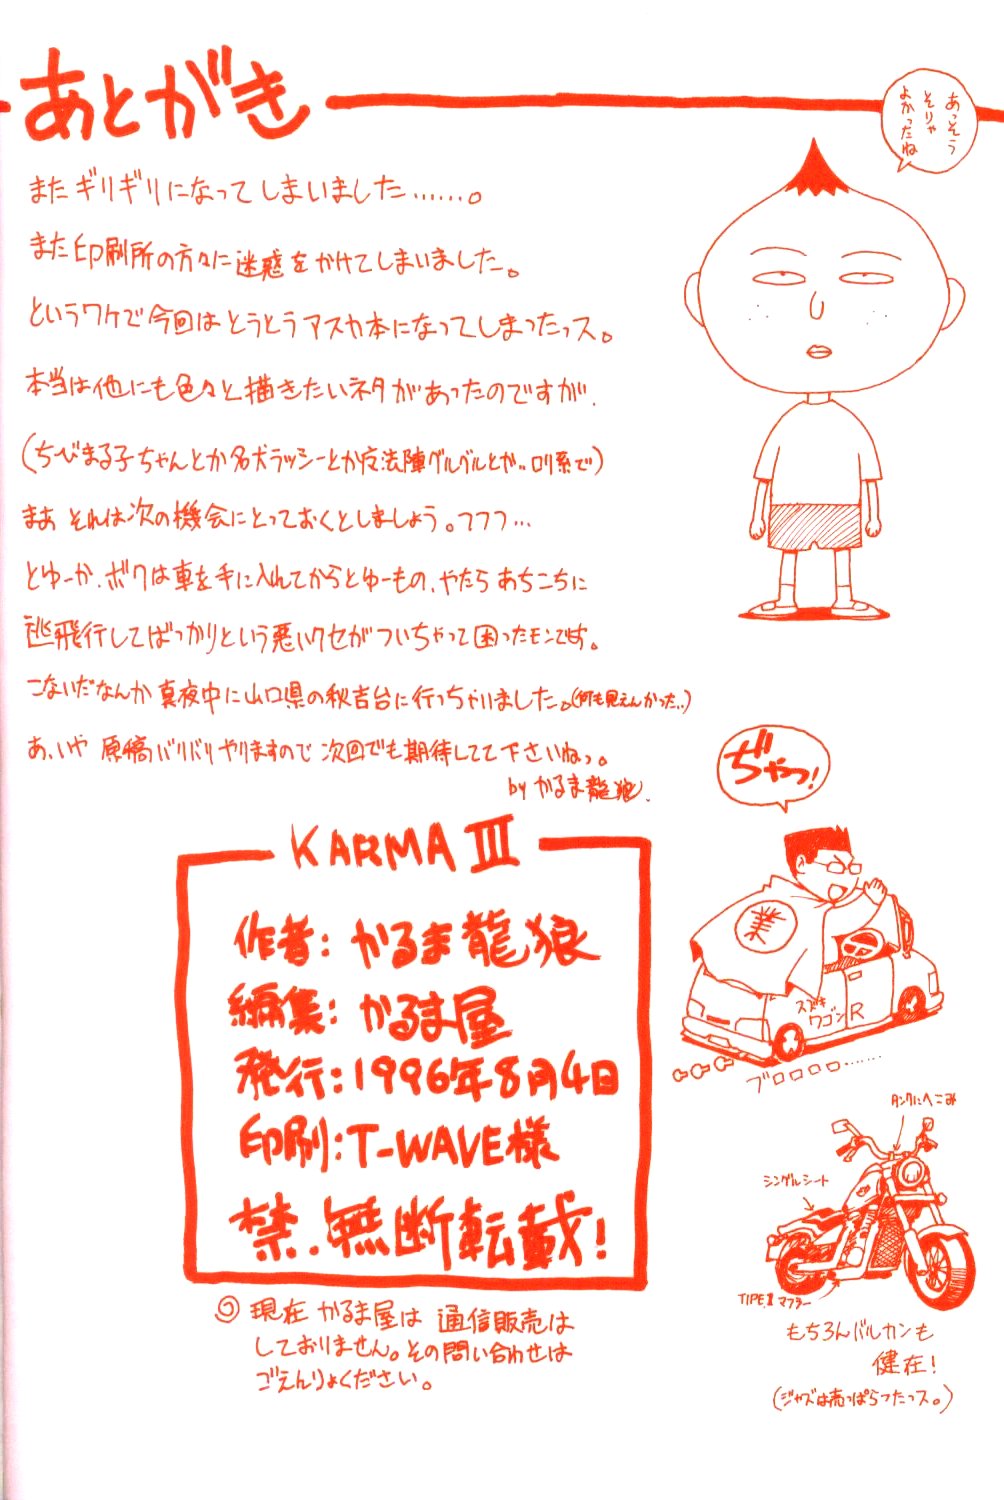 あとがき
あっそう
そりゃ
よかったね
またギリギリになってしまいました……。
また印刷所の方々に迷惑をかけてしまいました。
というワケで今回はとうとうアスカ本になってしまったっス。
本当は他にも色々と描きたいネタがあったのですが、
(ちびまる子ちゃんとか名犬ラッシーとか魔法陣グルグルとか…ロリ系で)
まあ それは次の機会にとっておくとしましょう。フフフ…
とゆーか、ボクは車を手に入れてからとゆーもの、やたら あちこちに
逃飛行してばっかりという悪いクセがついちゃって困ったモンです。
こないだなんか真夜中に山口県の秋吉台に行っちゃいました。(何も見えんかった..)
あ、いや 原稿バリバリやりますので 次回でも期待してて下さいねっ。
by かるま龍狼.
ぢゃっ!
業
スズキ
ワゴンR
ブロロロロ……
KARMA III
作者: かるま龍狼
編集: かるま屋
発行: 1996年8月4日
印刷: T-WAVE様
禁.無断転載!
◎ 現在 かるま屋は 通信販売は
しておりません。その問い合わせは
ごえんりょください。
タンクにへこみ
シングルシート
TIPEⅡマフラー
もちろんバルカンも
健在!
(ジャズは売っぱらったっス。)